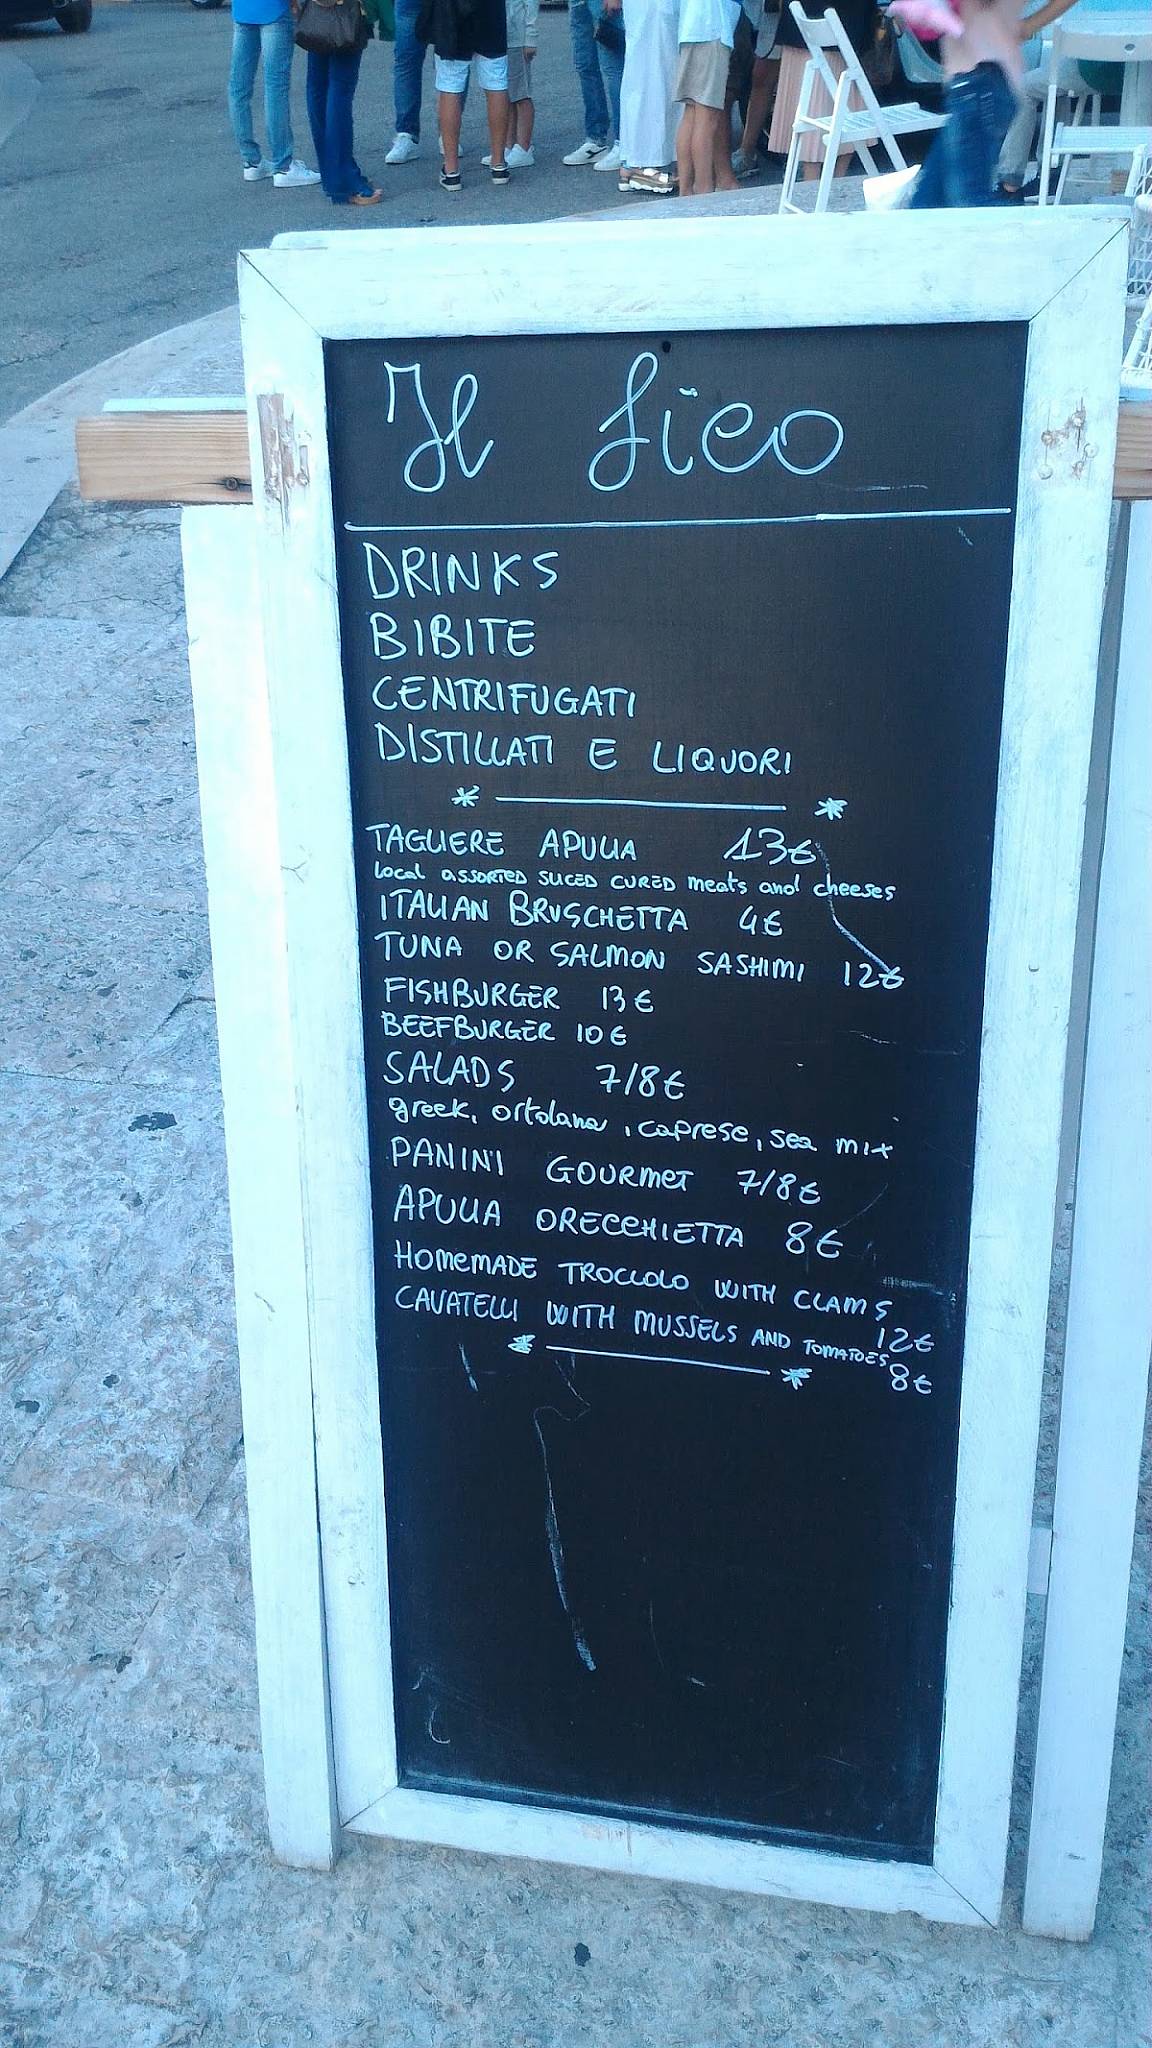 Il fico
DRINKS
BIBITE
CENTRIFUGATI
DISTILLATI E LIQUORI
* ——— *
TAGLIERE APULIA 13€
local ASSORTED SLICED CURED meats and cheeses
ITALIAN BRUSCHETTA 4€
TUNA OR SALMON SASHIMI 12€
FISHBURGER 13€
BEEFBURGER 10€
SALADS 7/8€
greek, ortolana, caprese, sea mix
PANINI GOURMET 7/8€
APULIA ORECCHIETTA 8€
HOMEMADE TROCCOLO WITH CLAMS 12€
CAVATELLI WITH MUSSELS AND TOMATOES 8€
* ——— *